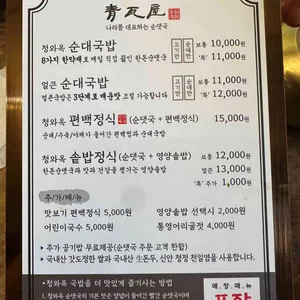 青瓦屋
나라를 대표하는 순댓국
청와옥 순대국밥 고기만 순대만 보통 10,000원
8가지 한약재로 매일 직접 끓인 한돈순댓국 '특' 11,000원
얼큰 순대국밥 고기만 순대만 보통 11,000원
얼큰국밥은 3단계로 매운맛 조절 가능합니다 '특' 12,000원
청와옥 편백정식 (순댓국 + 편백찜) 15,000원
순대/수육/야채가 들어간 편백찜과 순대국밥
청와옥 솥밥정식 (순댓국 + 영양솥밥) 보통 12,000원
한돈순댓국과 맛과 건강을 챙기는 영양솥밥 얼큰 13,000원
'특' 추가 1,000원
추/가/메/뉴
맛보기 편백정식 5,000원 영양솥밥 선택시 2,000원
어린이국수 5,000원 통영어리굴젓 4,000원
+ 추가 공기밥 무료제공(순댓국 주문 고객 한함)
+ 국내산 갓도정한 쌀과 국내산 生돈두, 신안 청정 천일염을 사용합니다.
~ 청와옥 국밥을 더 맛있게 즐기시는 방법 ~
1. 청와옥 순댓국의 기본 맛은 양념이 들어간 빨간 순댓국이며
매.장.메.뉴
포장